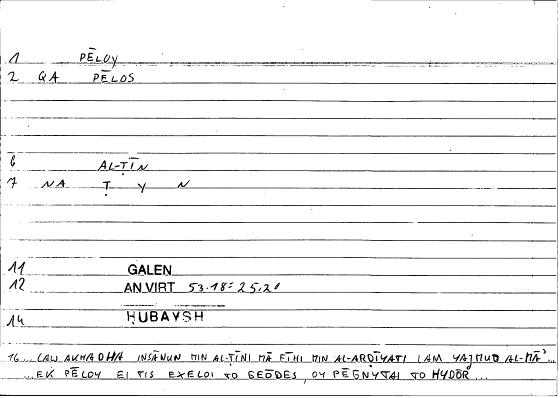 1 PĒLOY
2 QA PĒLOS
6 AL-ṬĪN
7 NA Ṭ Y N
11 GALEN
12 AN VIRT 53.18 = 25,20
14 ḤUBAYSH
16 ... LAW AKHADHA INSĀNUN MIN AL-ṬĪNI MĀ FĪHI MIN AL-ARḌĪYATI LAM YAJMUD AL-MĀʾ ...
... EK PĒLOY EI TIS EXELOI TO GEŌDES, OY PĒGNYTAI TO HYDŌR ...